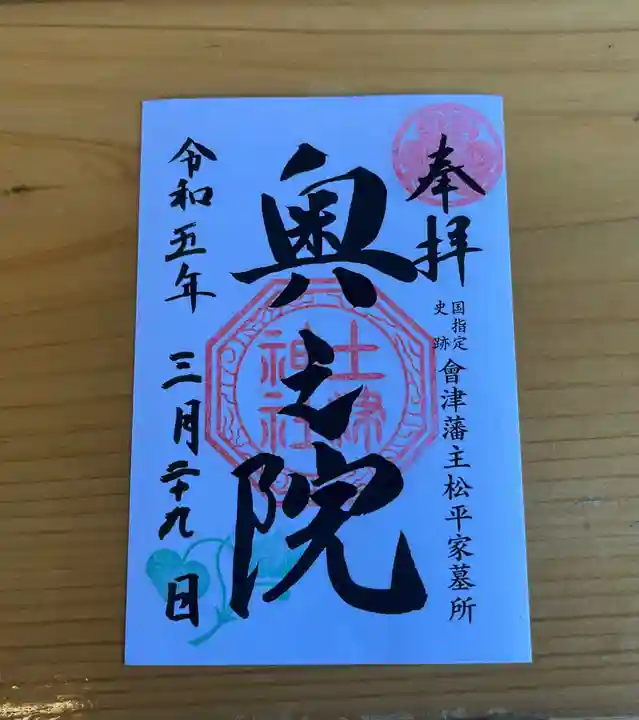 奉拝
国指定
史跡
會津藩主松平家墓所
奥之院
土津
神社
令和五年 三月二十九日